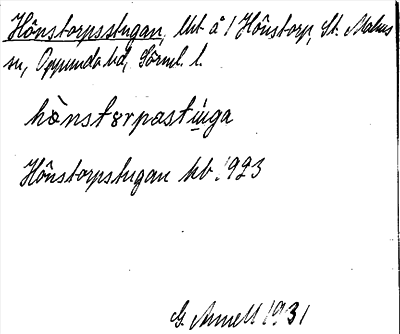 Hönstorpsstugan, lht å 1 Hönstorp, St. Malms
sn, Oppunda hd, Sörml. l.
hǫ̀nstɷrpastu̇ga
Hönstorpstugan kb 1923
G. Arnell 1931